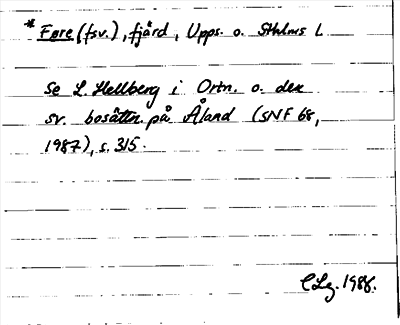 * Före (fsv.), fjärd, Upps. o. Sthlms L
Se L. Hellberg i Ortn. o. den
sv. bosättn. på Åland (SNF 68,
1987), s. 315.
CLg. 1988.